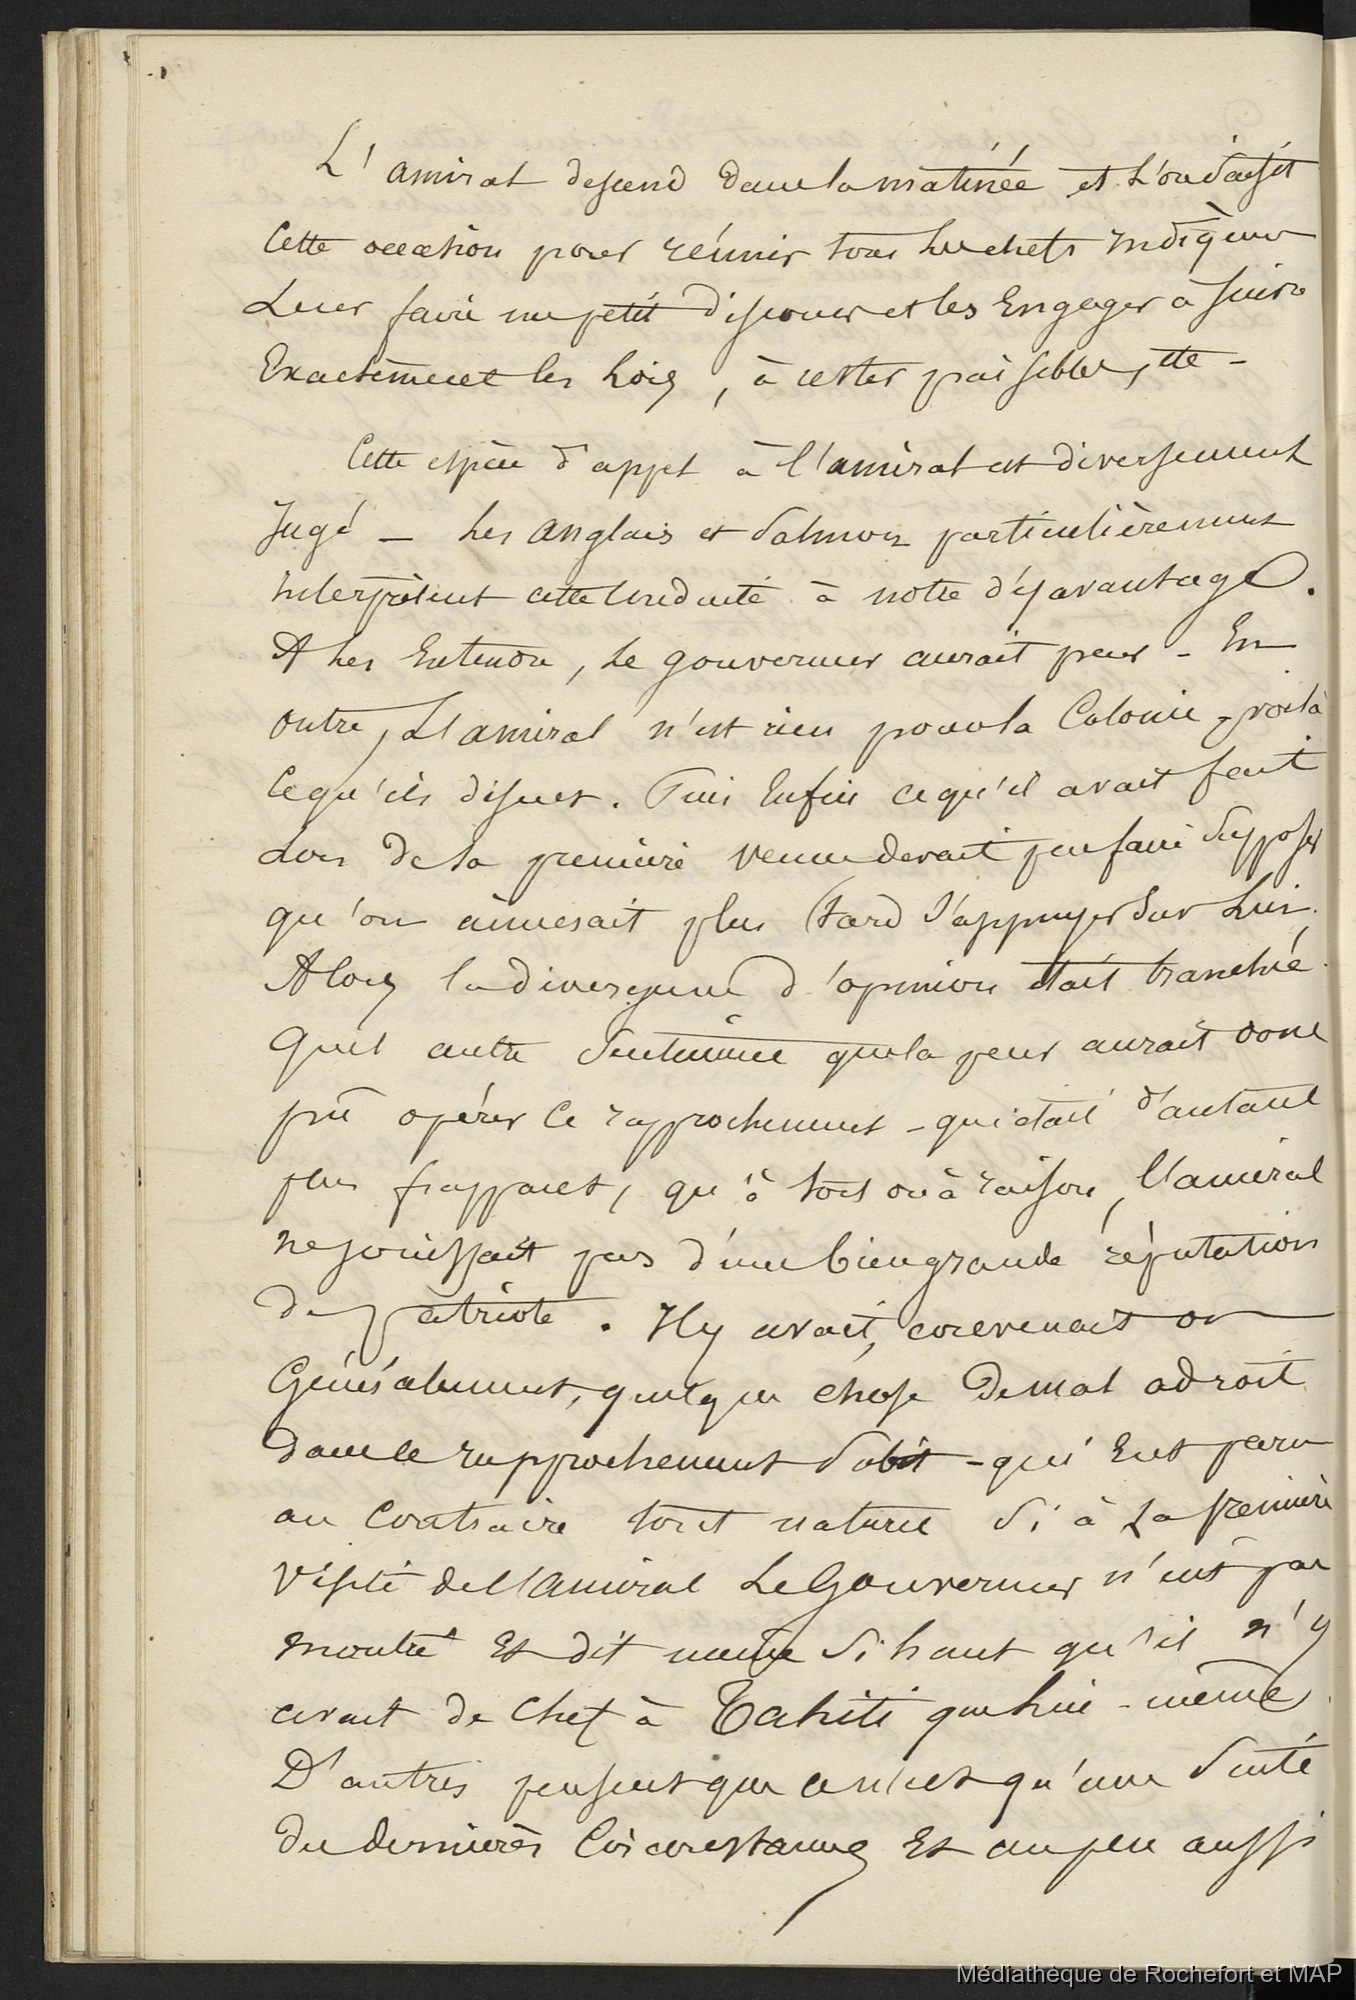 L'amiral descend dans la matinée et l'on saisit
cette occasion pour réunir tous les chefs indigènes
Leur faire un petit discours et les Engager à suivre
Exactement les Lois, à rester paisibles, etc -
Cette espèce d'appel à l'amiral est diversement
Jugé - Les anglais et Salmon particulièrement
interprètent cette conduite à notre désavantage.
A les Entendre, le gouverneur aurait peur - En
outre, L'amiral n'est rien pour la Colonie - voilà
ce qu'ils disent. Puis Enfin ce qu'il avait fait
Lors de sa première venue devait peu faire supposer
qu'on aimerait plus tard s'appuyer sur Lui.
Alors la divergence d'opinion était tranchée.
Quel autre sentiment que la peur aurait donc
pû opérer ce rapprochement - qui était d'autant
plus frappant, qu'à tort ou à raison, l'amiral
ne jouissait pas d'une bien grande réputation
de patriote. Il y avait, convenait on
Généralement, quelque chose de mal adroit
dans ce rapprochement subit - qui Eut paru
au contraire tout naturel si à La première
visite de l'amiral Le Gouverneur n'eut pas
montré Et dit même si haut qu'il n'y
avait de chef à Tahiti que lui-même.
D'autres pensent que ce n'est qu'une suite
des dernières circonstances Et un peu aussi
Médiathèque de Rochefort et MAP